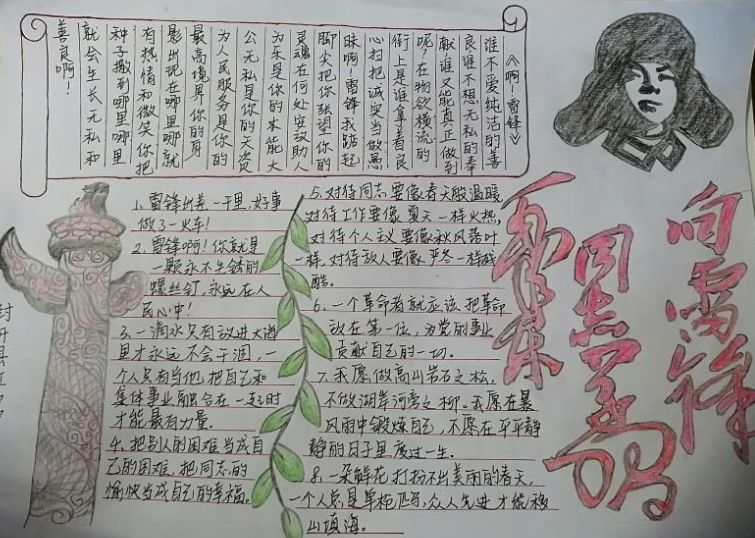 《啊!雷锋》
谁不爱纯洁的善
良谁不想无私的奉
献谁又能真正做到
呢?在物欲横流的
街上是谁拿着良
心扫把诚实当做愚
昧啊!雷锋我踮起
脚尖把你张望你的
灵魂在何处安放助人
为乐是你的本能大
公无私是你的天资
为人民服务是你的
最高境界你的身
影出现在哪里哪就
有热情和微笑你把
种子撒到哪里哪里
就会生长无私和
善良啊!
向雷锋
同志学习
毛泽东
1、雷锋出差一千里,好事
做了一火车!
2、雷锋啊!你就是
一颗永不生锈的
螺丝钉,永远在人
民心中!
3、一滴水只有放进大海
里才永远不会干涸,一
个人只有当他把自己和
集体事业融合在一起时
才能最有力量。
4、把别人的困难当成自
己的困难,把同志的
愉快当成自己的幸福。
5、对待同志要像春天般温暖
对待工作要像夏天一样火热,
对待个人主义要像秋风落叶
一样,对待敌人要像严冬一样残
酷。
6、一个革命者就应该把革命
放在第一位,为党的事业
贡献自己的一切。
7、我愿做高山岩石之松,
不做湖岸河旁之柳。我愿在暴
风雨中锻炼自己,不愿在平平静
静的日子里度过一生。
8、一朵鲜花打扮不出美丽的春天,
一个人总是单枪匹马,众人先进才能移
山填海。
封开县